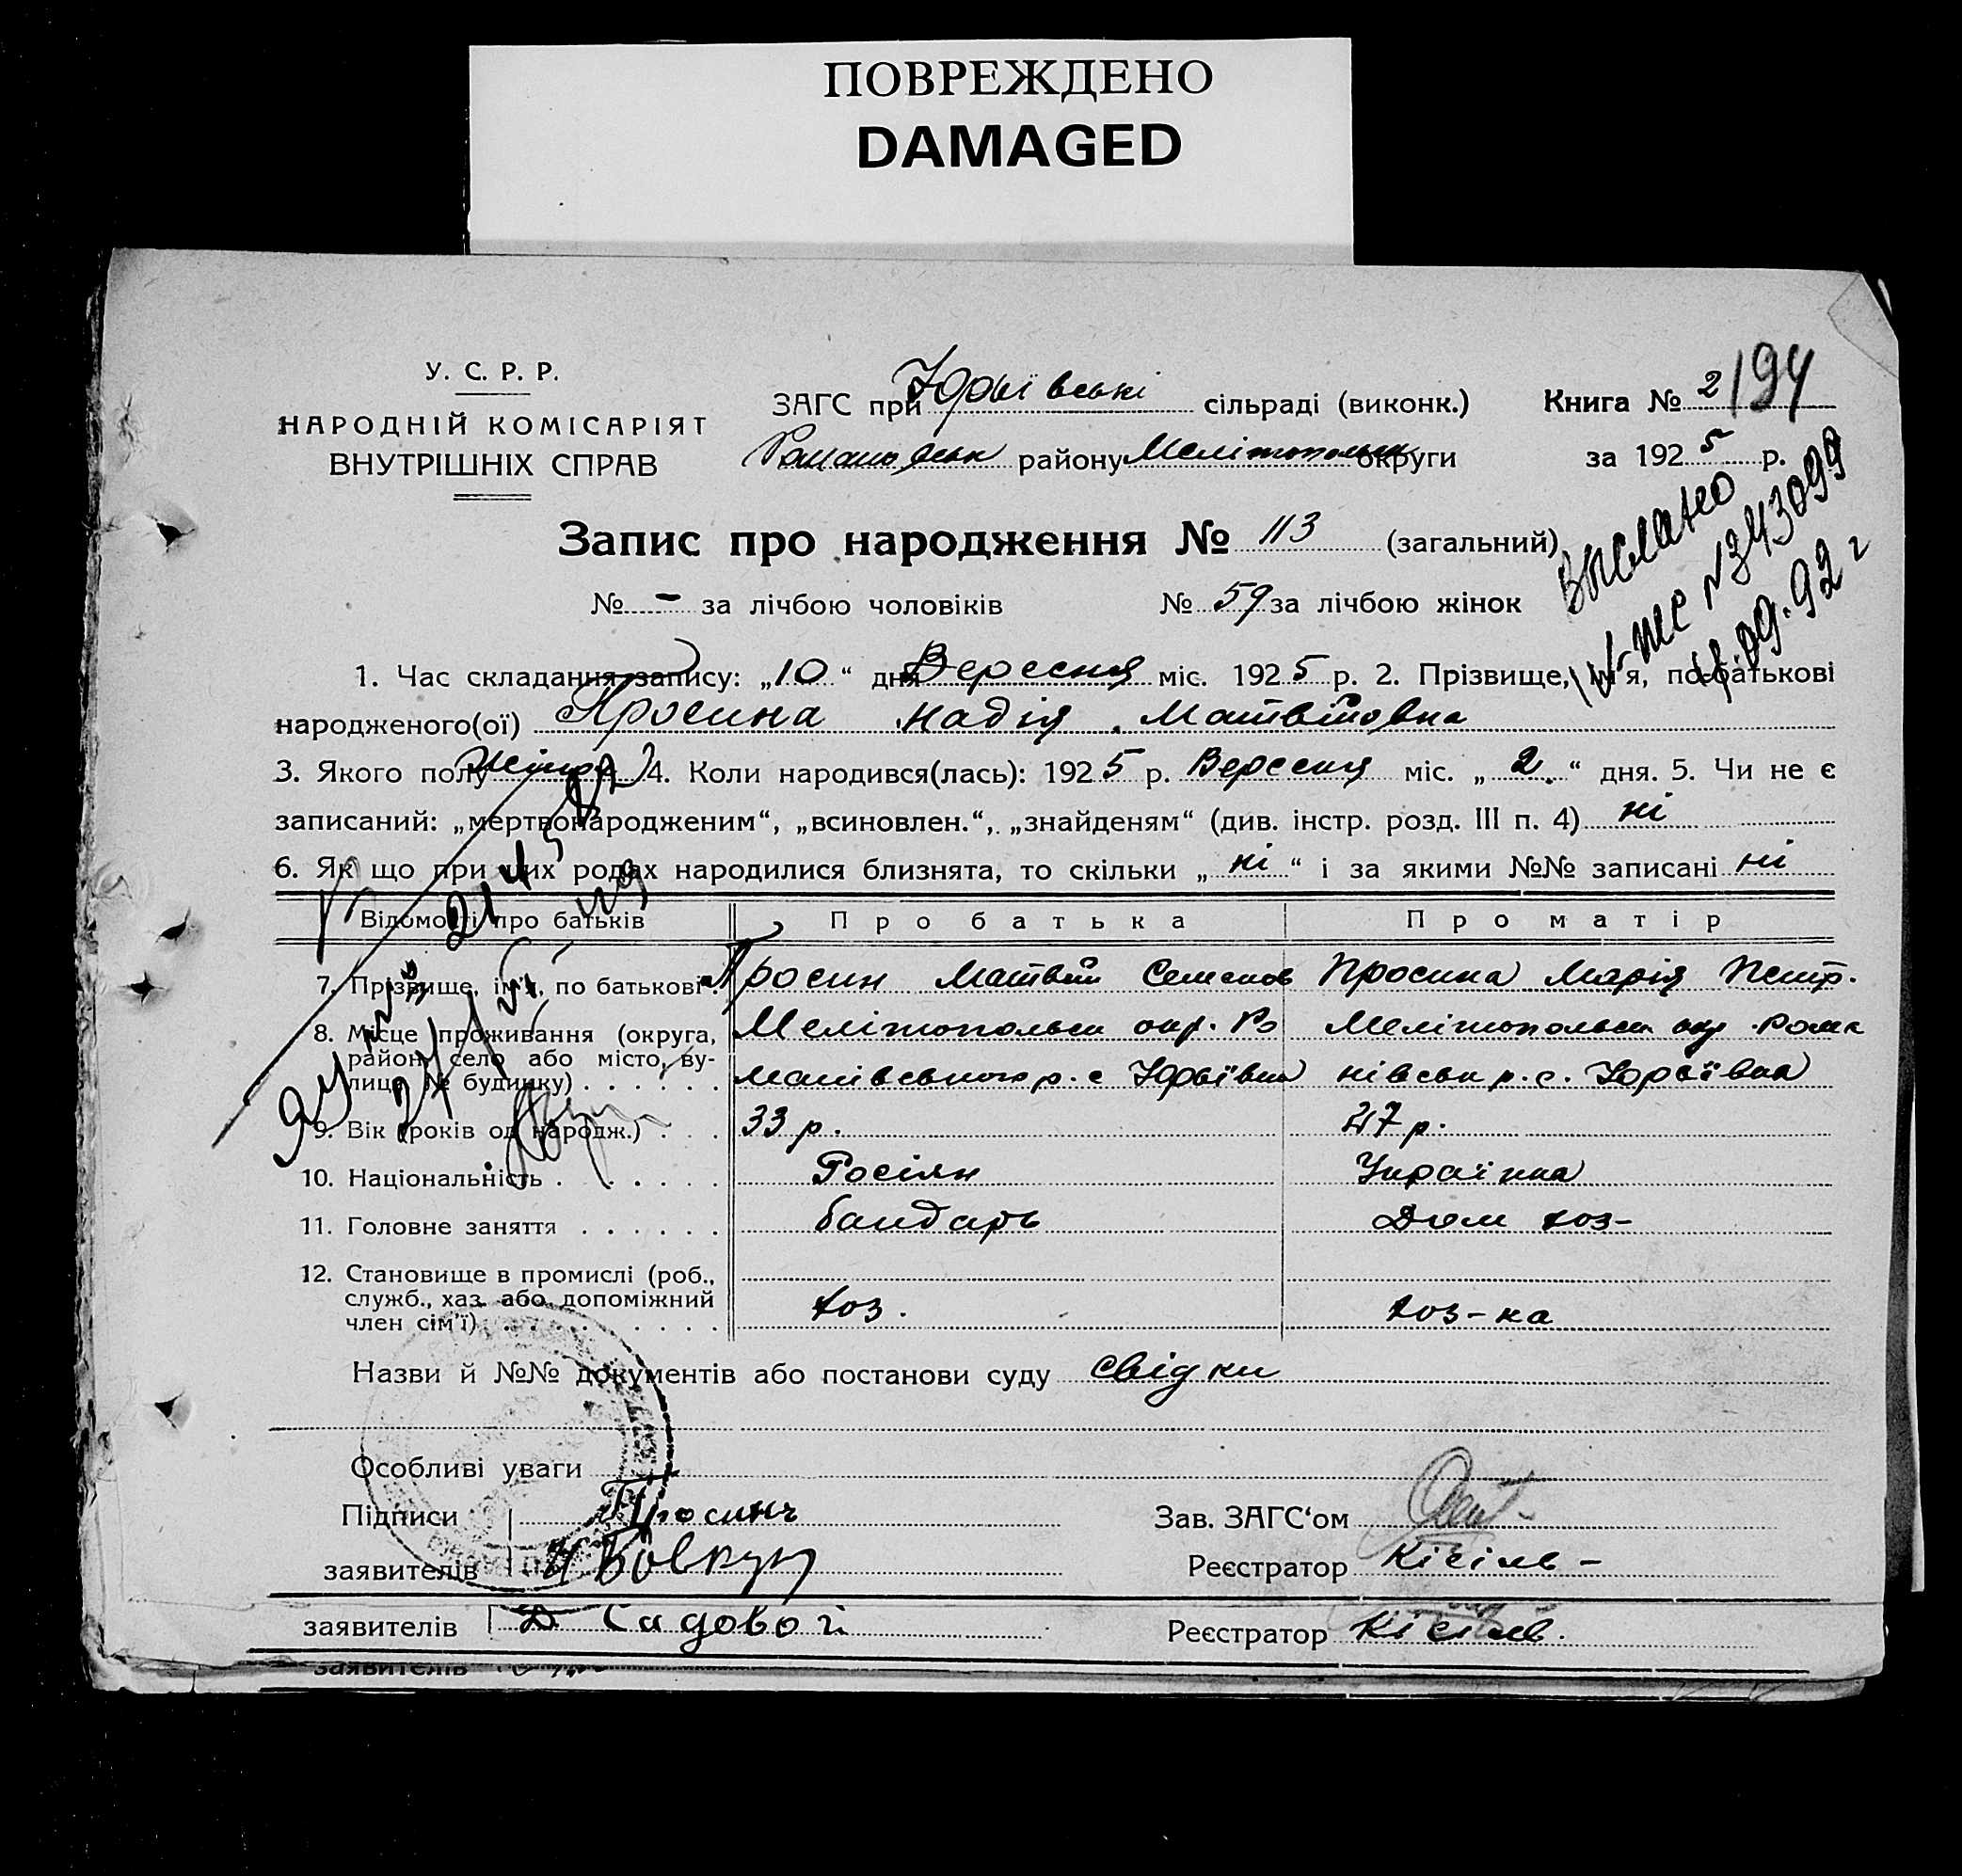 ПОВРЕЖДЕНО
DAMAGED
У. С. Р. Р.
НАРОДНІЙ КОМІСАРІЯТ
ВНУТРІШНІХ СПРАВ
ЗАГС при Юрʼївські сільраді (виконк.)
району Мелітопольськ округи
Книга № 2 194
за 1925 р.
Запис про народження № 113 (загальний)
№ - за лічбою чоловіків № 59 за лічбою жінок
Выслано
11.09.92 г
1. Час складання запису: „10“ дня Вересня міс. 1925 р. 2. Прізвище, імʼя, по-батькові
народженого(ої) Просина Надія Матвійовна
3. Якого полу Жіноч 4. Коли народився(лась): 1925 р. Вересня міс. „2.“ дня. 5. Чи не є
записаний: „мертвонародженим“, „всиновлен.“, „знайденям“ (див. інстр. розд. III п. 4) ні
6. Як що при цих родах народилися близнята, то скільки „ні“ і за якими №№ записані ні
Відомості про батьків Про батька Про матір
7. Прізвище, імʼя, по батькові. Просин Матвій Семенов Просина Марія Петр.
8. Місце проживання (округа, район, село або місто, вулиця № будинку) . . . . . .
Мелітопольськ окр. Ро
манівського р. с Юрʼївка
Мелітопольськ окр. Рома
нівськ р. с. Юрʼївка
9. Вік (років од народж.) . . . 33 р. 27 р.
10. Національність . . . . . . Росіян Українка
11. Головне заняття . . . . . . бандарь Дом хоз-
12. Становище в промислі (роб.,
служб., хаз. або допоміжний
член сімʼї) . . . . . . . . хоз. хоз-ка
Назви й №№ документів або постанови суду свідки
Особливі уваги
Підписи Просинъ Зав. ЗАГСʻом
заявителів Реєстратор Кісіль -
заявителів Д Садовой Реєстратор Кісіль.
заявителів